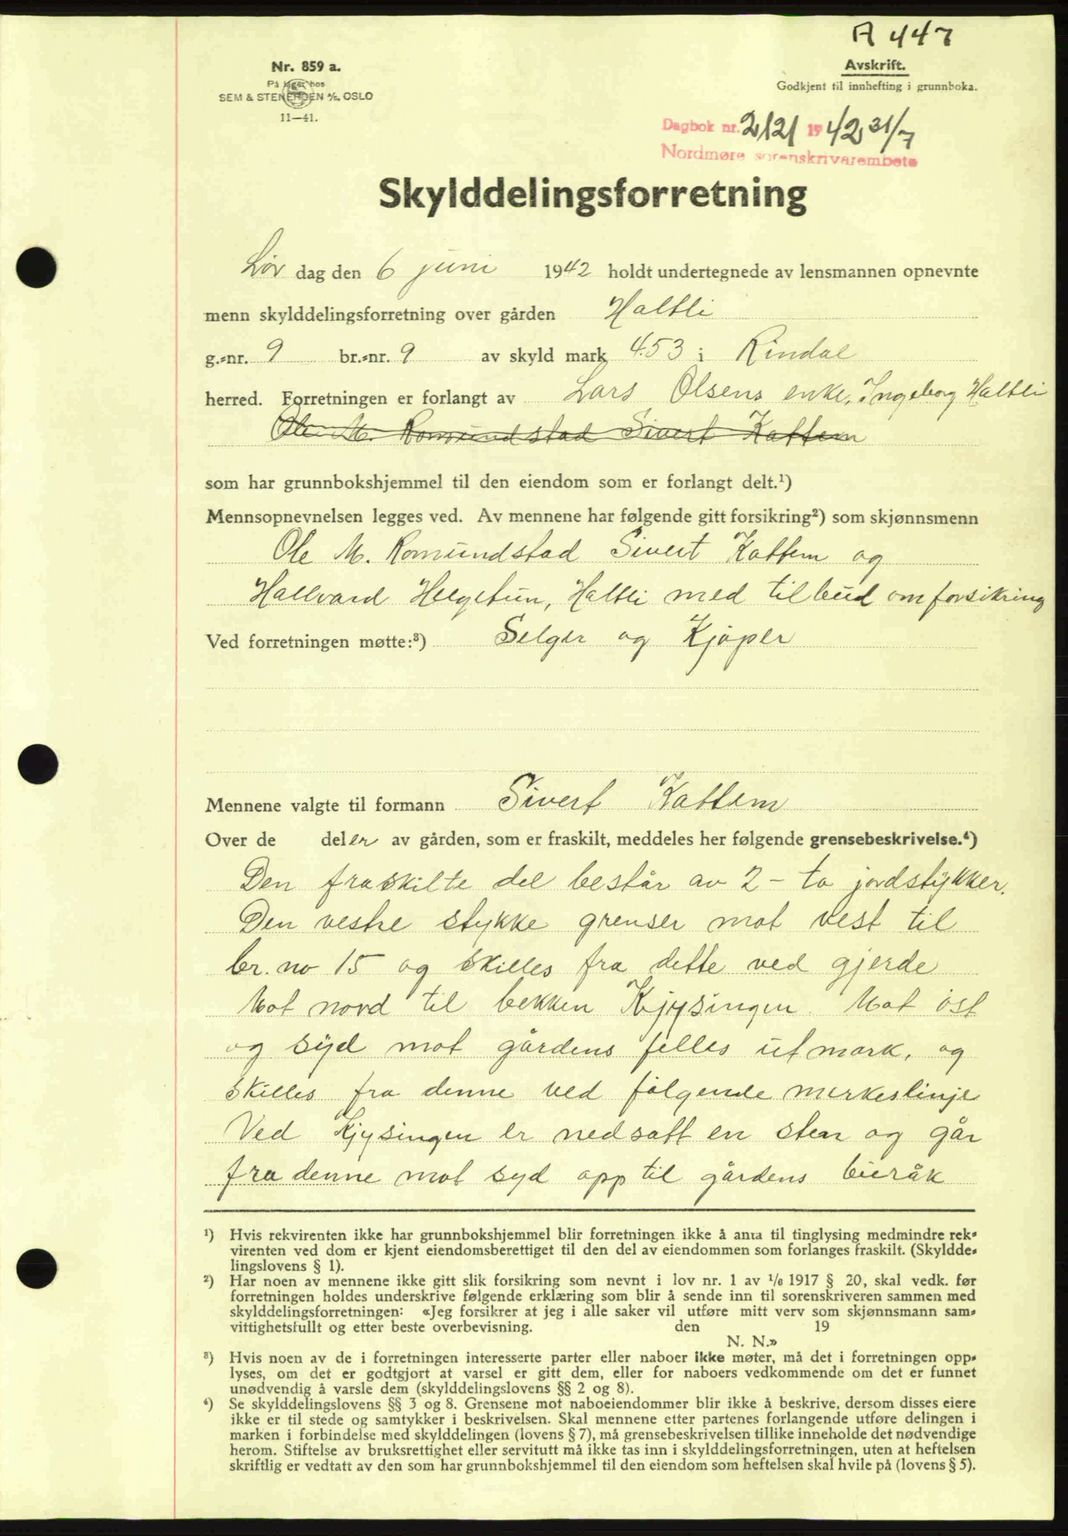 A 447
Nr. 859 a.
På lager hos
SEM & STENERSEN A/S, OSLO
11—41.
Avskrift.
Godkjent til innhefting i grunnboka.
Dagbok nr. 2121 1942 31/7
Nordmøre sorenskrivarembete
Skylddelingsforretning
Lør dag den 6 juni 1942 holdt undertegnede av lensmannen opnevnte
menn skylddelingsforretning over gården Haltli
g.=nr. 9 br.=nr. 9 av skyld mark 4.53 i Rindal
herred. Forretningen er forlangt av Lars Olsens enke, Ingeborg Haltli
Ole M. Romundstad Sivert Kattem
som har grunnbokshjemmel til den eiendom som er forlangt delt.¹)
Mennsopnevnelsen legges ved. Av mennene har følgende gitt forsikring²) som skjønnsmenn
Ole M. Romundstad Sivert Kattem og
Hallvard Helgetun, Haltli med tilbud om forsikring
Ved forretningen møtte:³) Selger og Kjøper
Mennene valgte til formann Sivert Kattem
Over de deler av gården, som er fraskilt, meddeles her følgende grensebeskrivelse.⁴)
Den fraskilte del består av 2 - to jordstykker.
Den vestre stykke grenser mot vest til
br. no 15 og skilles fra dette ved gjerde
Mot nord til bekken Kjysingen. Mot øst
og syd mot gårdens felles utmark, og
skilles fra denne ved følgende merkeslinje
Ved Kjysingen er nedsatt en sten og går
fra denne mot syd opp til gårdens bieråk
¹) Hvis rekvirenten ikke har grunnbokshjemmel blir forretningen ikke å anta til tinglysing medmindre rek=
virenten ved dom er kjent eiendomsberettiget til den del av eiendommen som forlanges fraskilt. (Skyldde=
lingslovens § 1).
²) Har noen av mennene ikke gitt slik forsikring som nevnt i lov nr. 1 av 1/6 1917 § 20, skal vedk. før
forretningen holdes underskrive følgende erklæring som blir å sende inn til sorenskriveren sammen med
skylddelingsforretningen: «Jeg forsikrer at jeg i alle saker vil utføre mitt verv som skjønnsmann sam=
vittighetsfullt og etter beste overbevisning. den 19
N. N.»
³) Hvis noen av de i forretningen interesserte parter eller naboer ikke møter, må det i forretningen opp=
lyses, om det er godtgjort at varsel er gitt dem, eller for naboers vedkommende om det er funnet
unødvendig å varsle dem (skylddelingslovens §§ 2 og 8).
⁴) Se skylddelingslovens §§ 3 og 8. Grensene mot naboeiendommer blir ikke å beskrive, dersom disses eiere
ikke er til stede og samtykker i beskrivelsen. Skal mennene etter partenes forlangende utføre delingen i
marken i forbindelse med skylddelingen (lovens § 7), må grensebeskrivelsen tillike inneholde det nødvendige
herom. Stiftelse av bruksrettighet eller servitutt må ikke tas inn i skylddelingsforretningen, uten at heftelsen
skriftlig er vedtatt av den som har grunnbokshjemmel til den eiendom som heftelsen skal hvile på (lovens § 5).